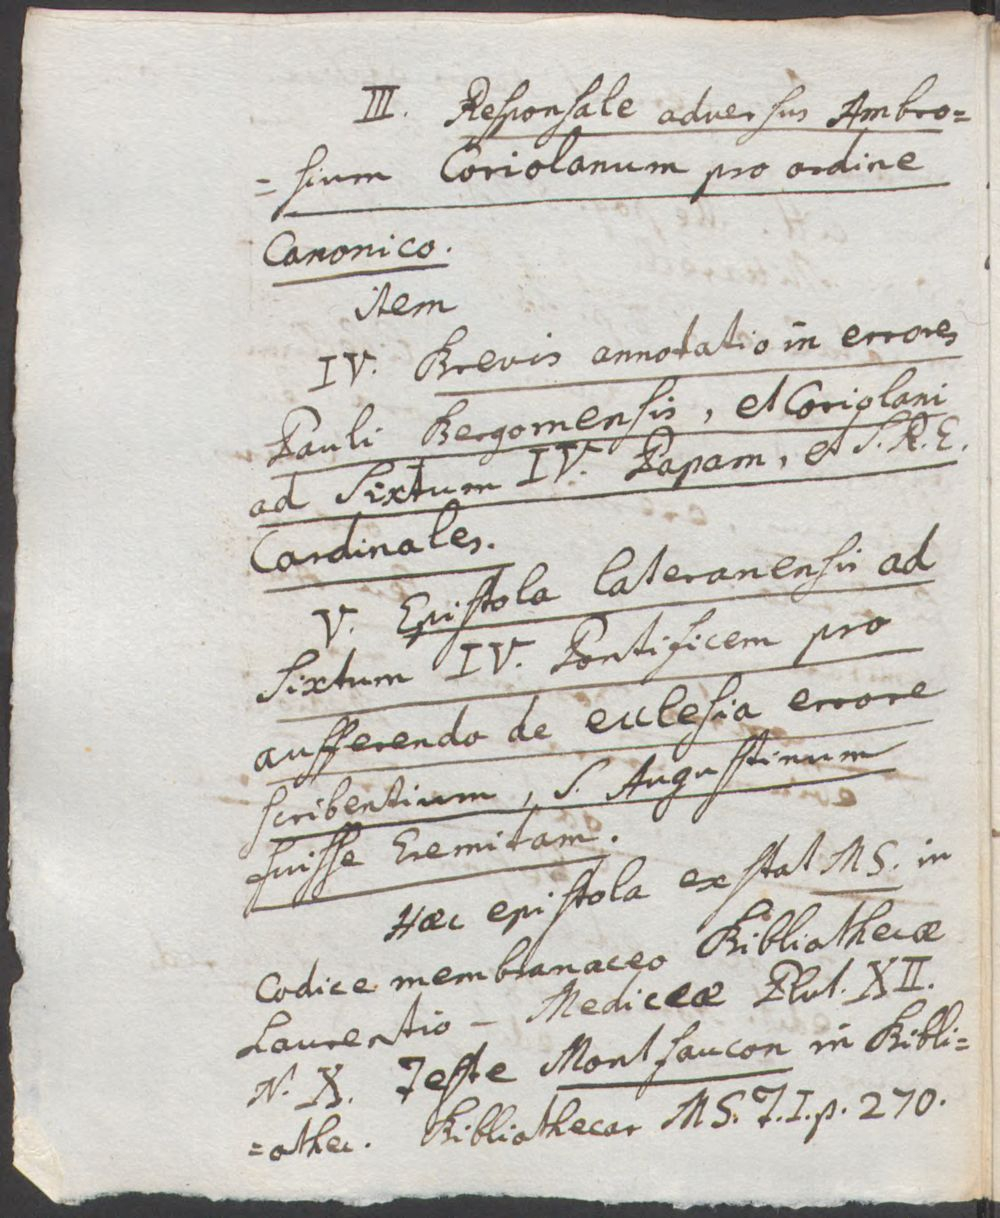 III. Responsale adversus Ambro=
=sium Coriolanum pro ordine
Canonico.
item
IV. Brevis annotatio in errores
Pauli Bergomensis, et Coriolani
ad Sixtum IV. Papam, et S. R. E.
Cardinales.
V. Epistola lateranensis ad
Sixtum IV. Pontificem pro
aufferendo de ecclesia errore
scribentium, S. Augustinum
fuisse Eremitam.
Hæc epistola exstat MS. in
Codice membranaceo Bibliothecæ
Laurentio - Mediceæ Plut. XII.
N. X. Teste Montfaucon in Bibli=
=othec. Bibliothecar MS. T. I. p. 270.